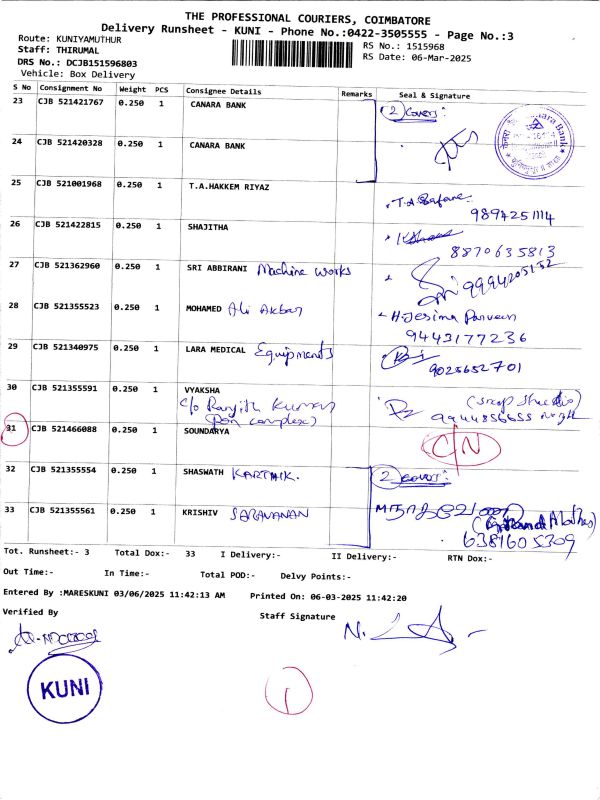 THE PROFESSIONAL COURIERS, COIMBATORE
Delivery Runsheet - KUNI - Phone No.:0422-3505555 - Page No.:3
Route: KUNIYAMUTHUR
RS No.: 1515968
Staff: THIRUMAL
RS Date: 06-Mar-2025
DRS No.: DCJB151596803
Vehicle: Box Delivery
S No Consignment No Weight PCS Consignee Details Remarks Seal & Signature
23 CJB 521421767 0.250 1 CANARA BANK 2 Covers:
24 CJB 521420328 0.250 1 CANARA BANK
25 CJB 521001968 0.250 1 T.A.HAKKEM RIYAZ
9894251114
26 CJB 521422815 0.250 1 SHAJITHA
8870635813
27 CJB 521362960 0.250 1 SRI ABBIRANI Machine Works
9994205152
28 CJB 521355523 0.250 1 MOHAMED Ali Akbar H.Jesima Parveen
9443177236
29 CJB 521340975 0.250 1 LARA MEDICAL Equipments
9025652701
30 CJB 521355591 0.250 1 VYAKSHA
C/o Ranjith Kumar
9944856655
31 CJB 521466088 0.250 1 SOUNDARYA C/N
32 CJB 521355554 0.250 1 SHASWATH KARTHIK. 2 Covers:
33 CJB 521355561 0.250 1 KRISHIV SARAVANAN
6381605309
Tot. Runsheet:- 3 Total Dox:- 33 I Delivery:- II Delivery:- RTN Dox:-
Out Time:- In Time:- Total POD:- Delvy Points:-
Entered By :MARESKUNI 03/06/2025 11:42:13 AM Printed On: 06-03-2025 11:42:20
Verified By Staff Signature
KUNI
1